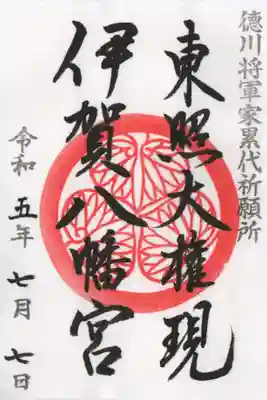 德川将軍家累代祈願所
東照大権現
伊賀八幡宮
令和五年七月七日